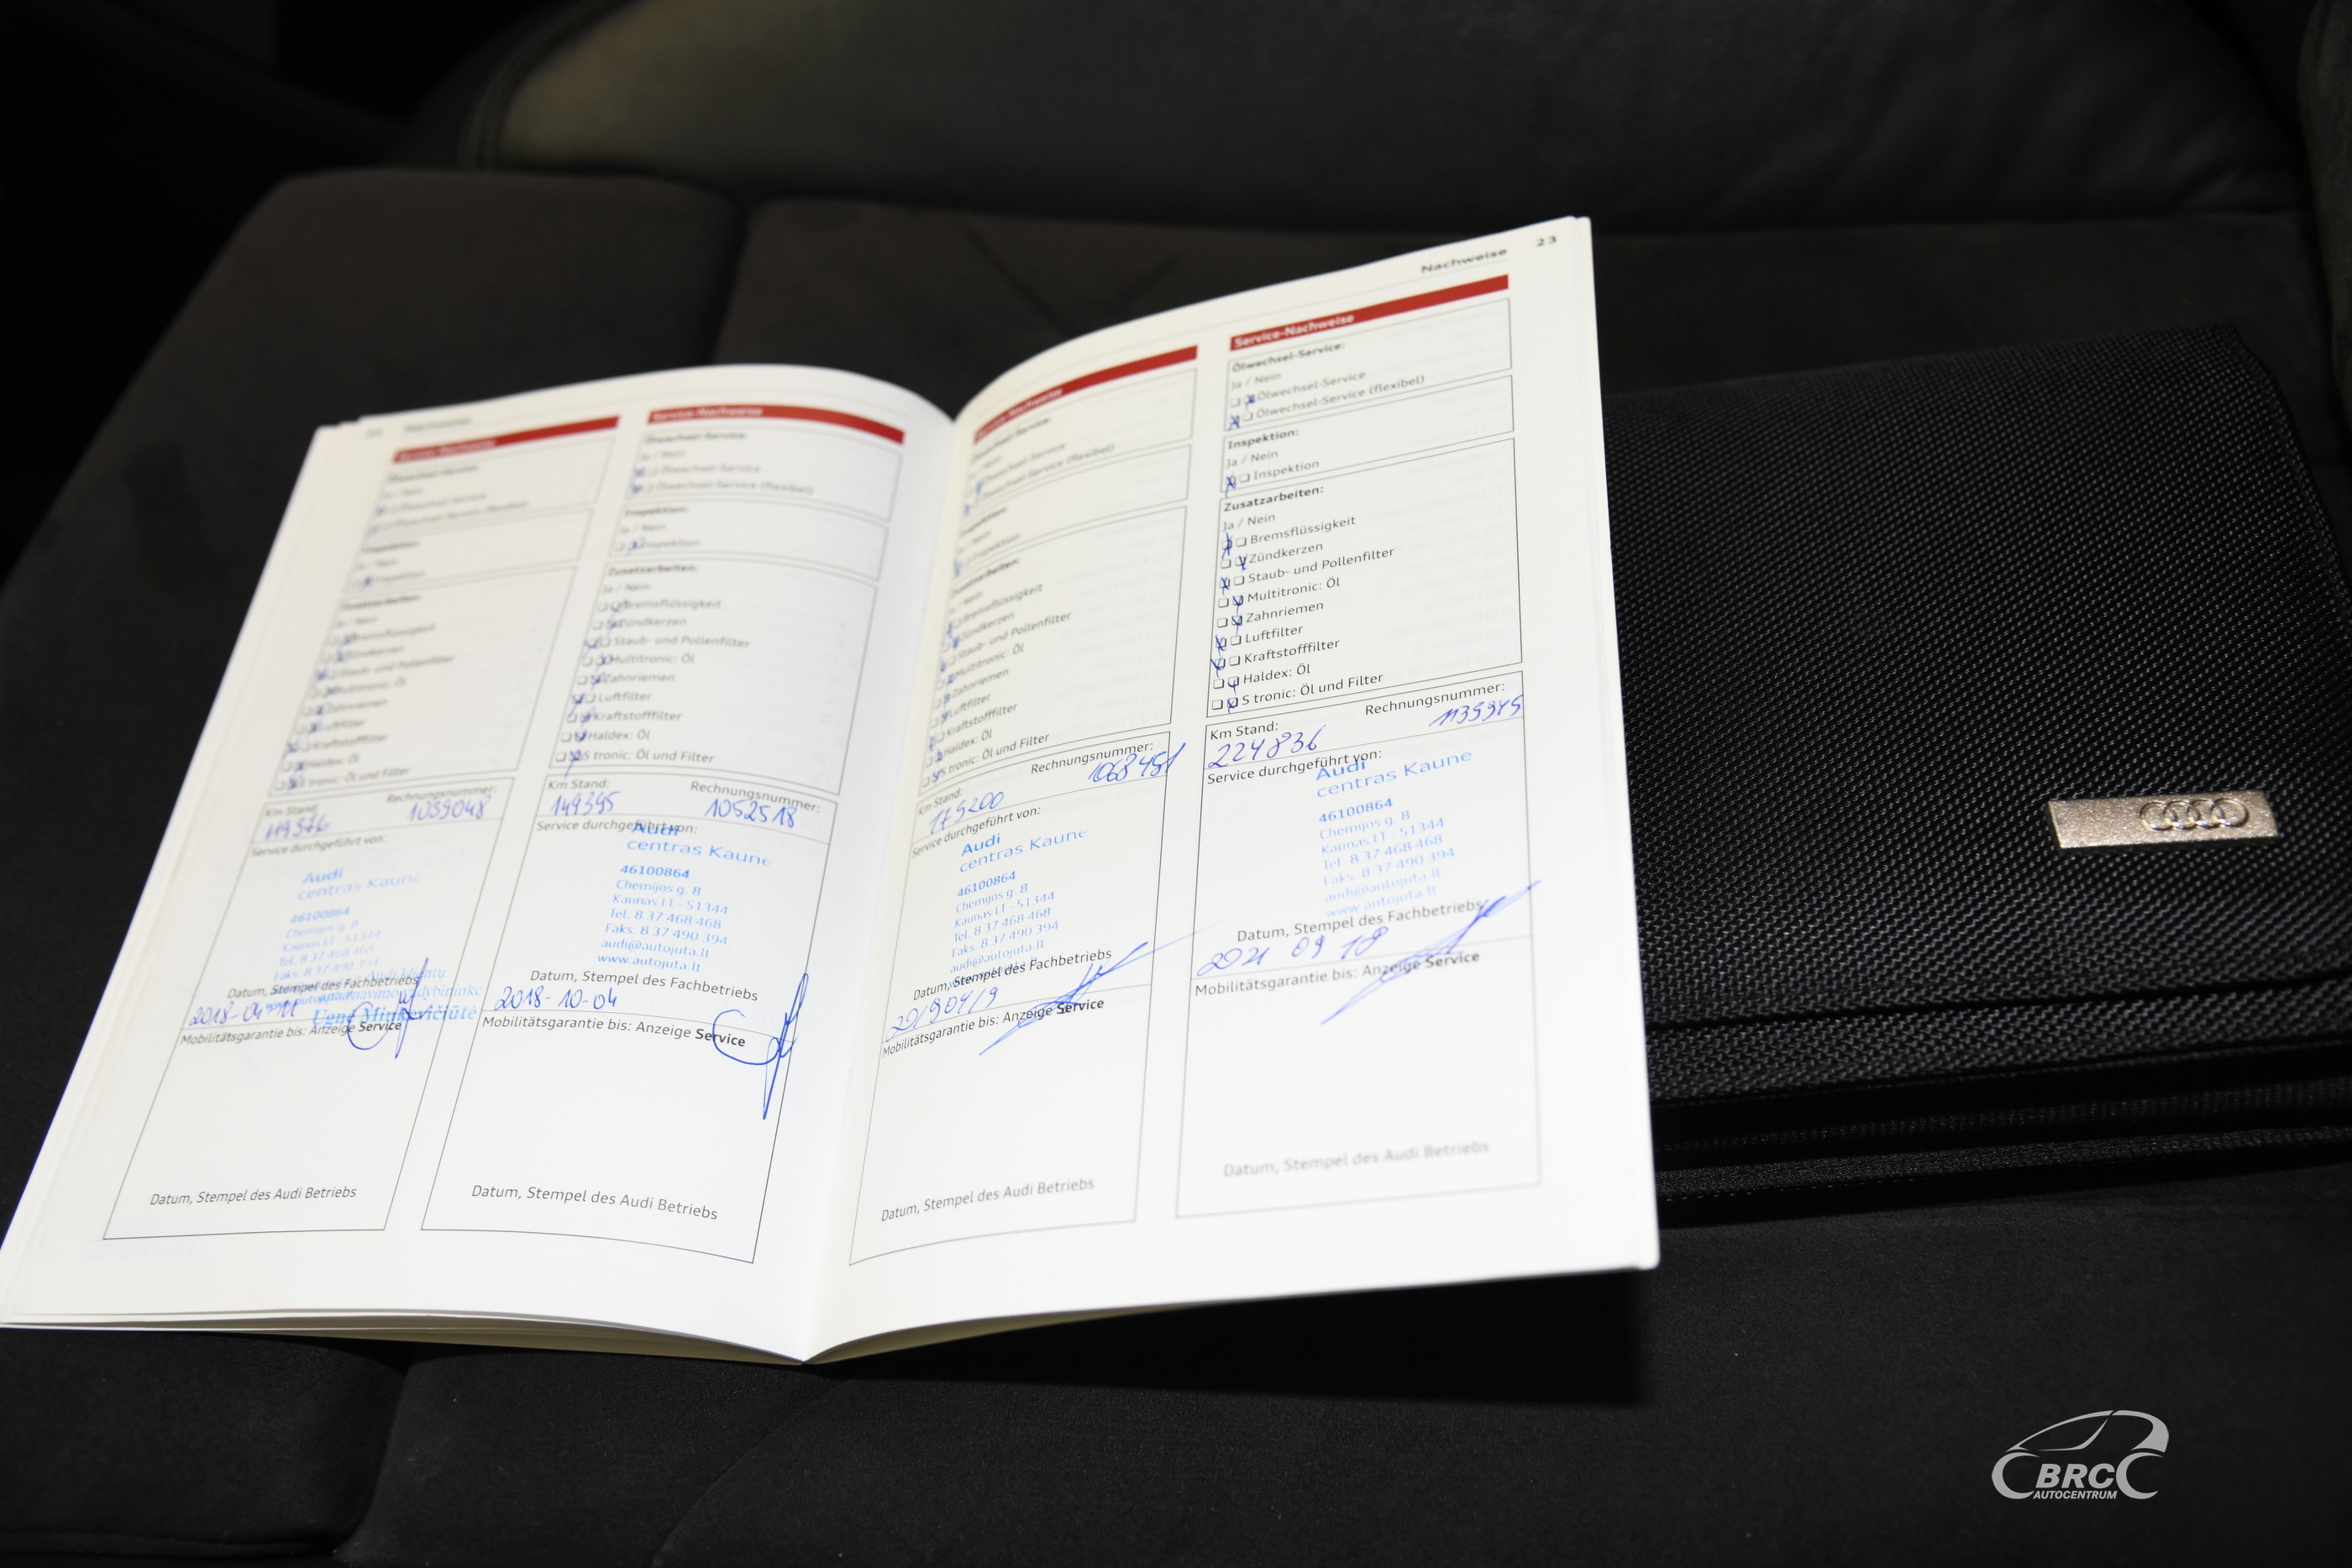 Nachweise
Service-Nachweise
Ölwechsel-Service:
Ja / Nein
Ölwechsel-Service
Ölwechsel-Service (flexibel)
Inspektion:
Ja / Nein
Inspektion
Zusatzarbeiten:
Ja / Nein
Bremsflüssigkeit
Zündkerzen
Staub- und Pollenfilter
Multitronic: Öl
Zahnriemen
Luftfilter
Kraftstofffilter
Haldex: Öl
S tronic: Öl und Filter
Km Stand: Rechnungsnummer:
1039048
Service durchgeführt von:
Audi
centras Kaune
46100864
Chemijos g. 8
Kaunas LT - 51344
Tel. 8 37 468 468
Faks. 8 37 490 394
Datum, Stempel des Fachbetriebs
2018-04-11
Ugnė Minkevičiūtė
Mobilitätsgarantie bis: Anzeige Service
Datum, Stempel des Audi Betriebs
Service-Nachweise
Ölwechsel-Service:
Ja / Nein
Ölwechsel-Service
Ölwechsel-Service (flexibel)
Inspektion:
Ja / Nein
Inspektion
Zusatzarbeiten:
Ja / Nein
Bremsflüssigkeit
Zündkerzen
Staub- und Pollenfilter
Multitronic: Öl
Zahnriemen
Luftfilter
Kraftstofffilter
Haldex: Öl
S tronic: Öl und Filter
Km Stand: Rechnungsnummer:
149395 1052518
Service durchgeführt von:
Audi
centras Kaune
46100864
Chemijos g. 8
Kaunas LT - 51344
Tel. 8 37 468 468
Faks. 8 37 490 394
audi@autojuta.lt
www.autojuta.lt
Datum, Stempel des Fachbetriebs
2018-10-04
Mobilitätsgarantie bis: Anzeige Service
Datum, Stempel des Audi Betriebs
Nachweise 23
Service-Nachweise
Ölwechsel-Service:
Ja / Nein
Ölwechsel-Service
Ölwechsel-Service (flexibel)
Inspektion:
Ja / Nein
Inspektion
Zusatzarbeiten:
Ja / Nein
Bremsflüssigkeit
Zündkerzen
Staub- und Pollenfilter
Multitronic: Öl
Zahnriemen
Luftfilter
Kraftstofffilter
Haldex: Öl
S tronic: Öl und Filter
Km Stand: Rechnungsnummer:
175200 1068451
Service durchgeführt von:
Audi
centras Kaune
46100864
Chemijos g. 8
Kaunas LT - 51344
Tel. 8 37 468 468
Faks. 8 37 490 394
audi@autojuta.lt
Datum, Stempel des Fachbetriebs
Mobilitätsgarantie bis: Anzeige Service
Datum, Stempel des Audi Betriebs
Service-Nachweise
Ölwechsel-Service:
Ja / Nein
Ölwechsel-Service
Ölwechsel-Service (flexibel)
Inspektion:
Ja / Nein
Inspektion
Zusatzarbeiten:
Ja / Nein
Bremsflüssigkeit
Zündkerzen
Staub- und Pollenfilter
Multitronic: Öl
Zahnriemen
Luftfilter
Kraftstofffilter
Haldex: Öl
S tronic: Öl und Filter
Km Stand: Rechnungsnummer:
224836 1135945
Service durchgeführt von:
Audi
centras Kaune
46100864
Chemijos g. 8
Kaunas LT - 51344
Tel. 8 37 468 468
Faks. 8 37 490 394
audi@autojuta.lt
www.autojuta.lt
Datum, Stempel des Fachbetriebs
2021 09 18
Mobilitätsgarantie bis: Anzeige Service
Datum, Stempel des Audi Betriebs
BRC
AUTOCENTRUM